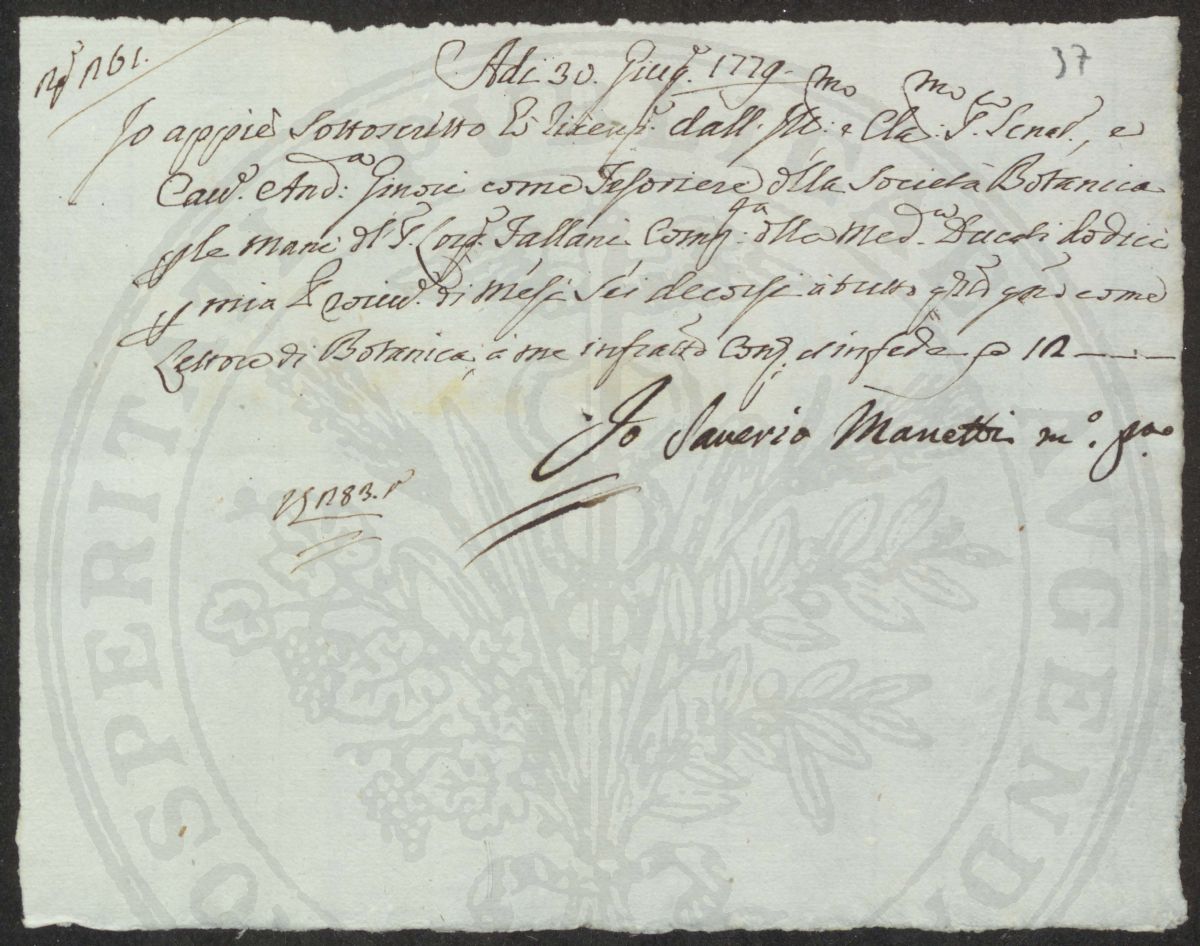 37
Adi 30. Giug.º 1779.
Io appiè Sottoscritto hò ricev.to dall. Ill:mo e Cla:mo Sr. Senat.re, e
Cav.e And:a Ginori come Tesoriere della Società Botanica
per le mani del Sr. Lor.o Fallani Comp:ta della Med.a Ducati dodici
per mia Provv.e di Mesi Sei decorsi a tutto come
Lettore di Botanica; à me infratto Cont.i ed in fede 12
Io Saverio Manetti m.º p.ria
PROSPERITATI PVBLICAE AVGENDAE